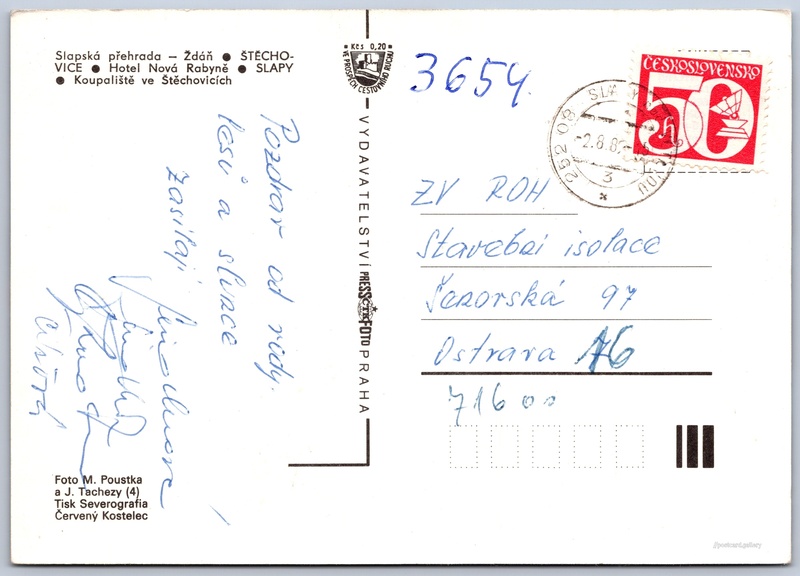 Slapská přehrada – Ždáň ● ŠTĚCHO-
VICE ● Hotel Nová Rabyně ● SLAPY
● Koupaliště ve Štěchovicích
Kčs 0,20
VE PROSPĚCH CESTOVNÍHO RUCHU
Pozdrav od vody
lesů a slunce
zasílají
Foto M. Poustka
a J. Tachezy (4)
Tisk Severografia
Červený Kostelec
VYDAVATELSTVÍ PRESSFOTO PRAHA
ČTK
3654
ČESKOSLOVENSKO
50 h
252 08 SLAPY
-2.8.8
3
ZV ROH
Stavební isolace
Ostrava 16
716 00